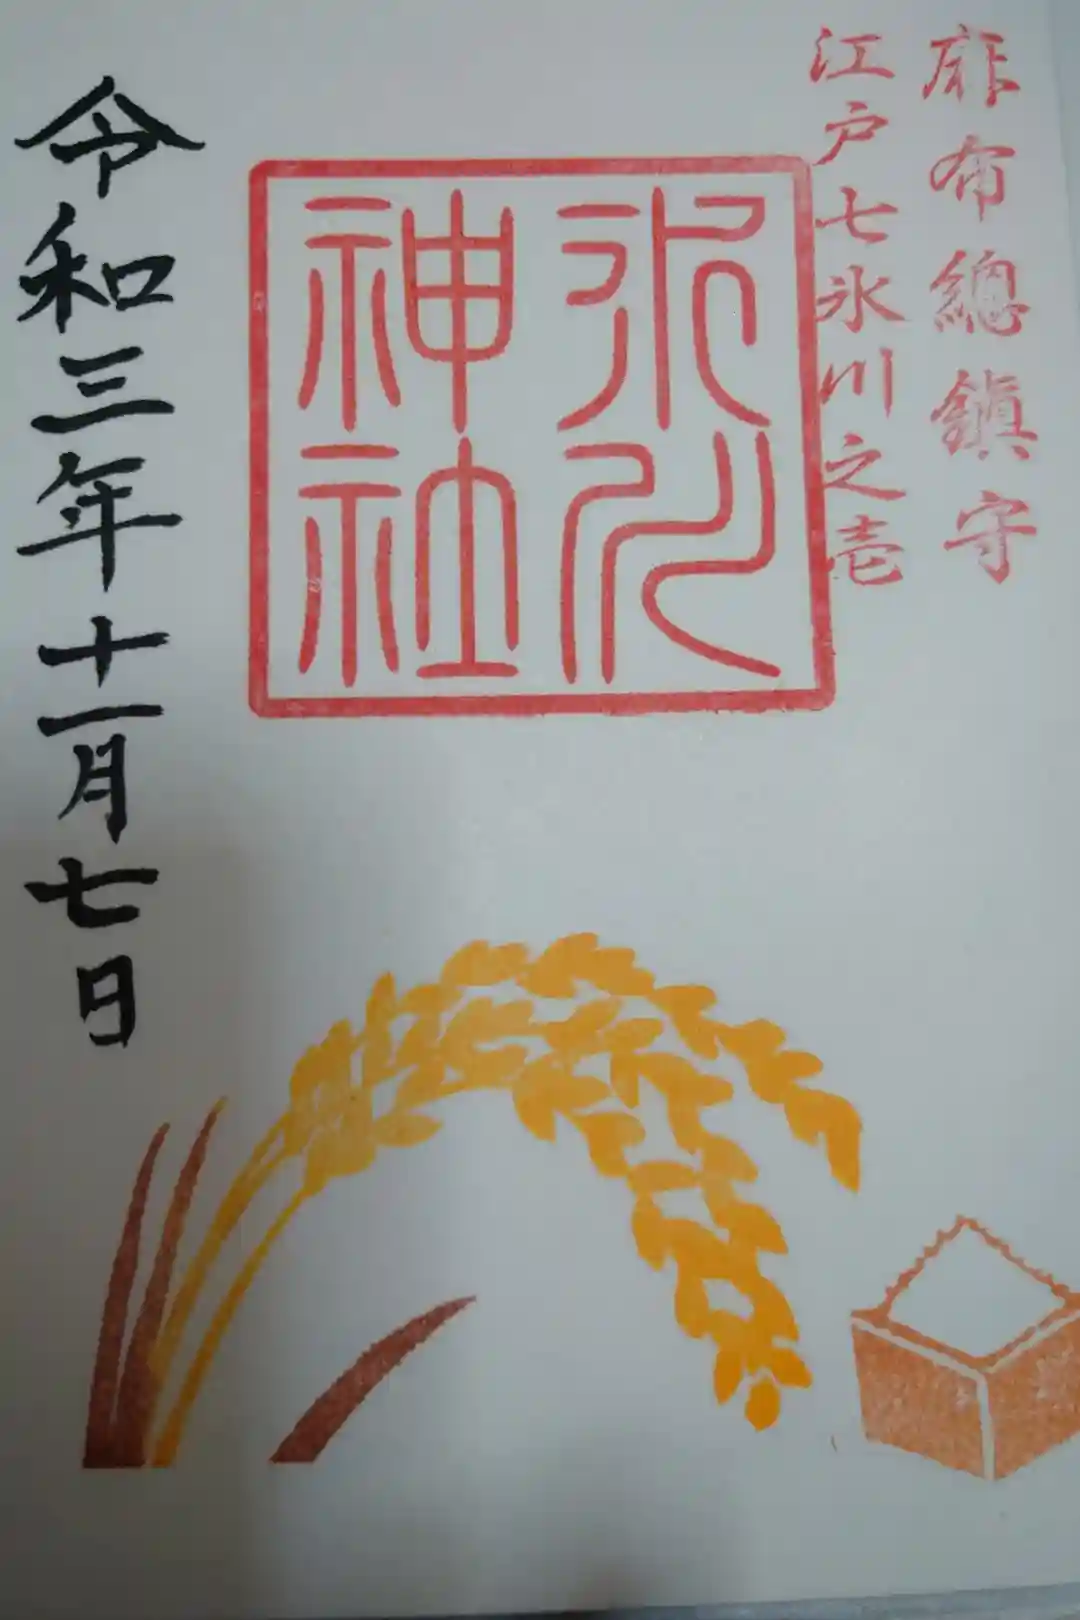 麻布總鎭守
江戸七氷川之壱
氷川
神社
令和三年十一月七日